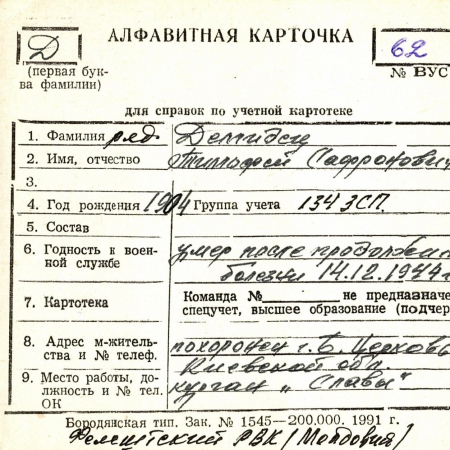 Д
АЛФАВИТНАЯ КАРТОЧКА
62
(первая бук-
ва фамилии)
№ ВУС
для справок по учетной картотеке
1. Фамилия ряд.
2. Имя, отчество Тимофей Сафронович
3.
4. Год рождения 1904 Группа учета 134 ЗСП.
5. Состав
6. Годность к воен-
ной службе
умер после продолжит
болезни 14.12.1944г
7. Картотека
Команда № не предназначе
спецучет, высшее образование (подчер
8. Адрес м-житель-
ства и № телеф.
похоронен г. Б. Церковь
Киевской обл
9. Место работы, до-
лжность и № тел.
ОК
курган „Славы"
Бородянская тип. Зак. № 1545—200.000. 1991 г.
РВК (Молдовия)